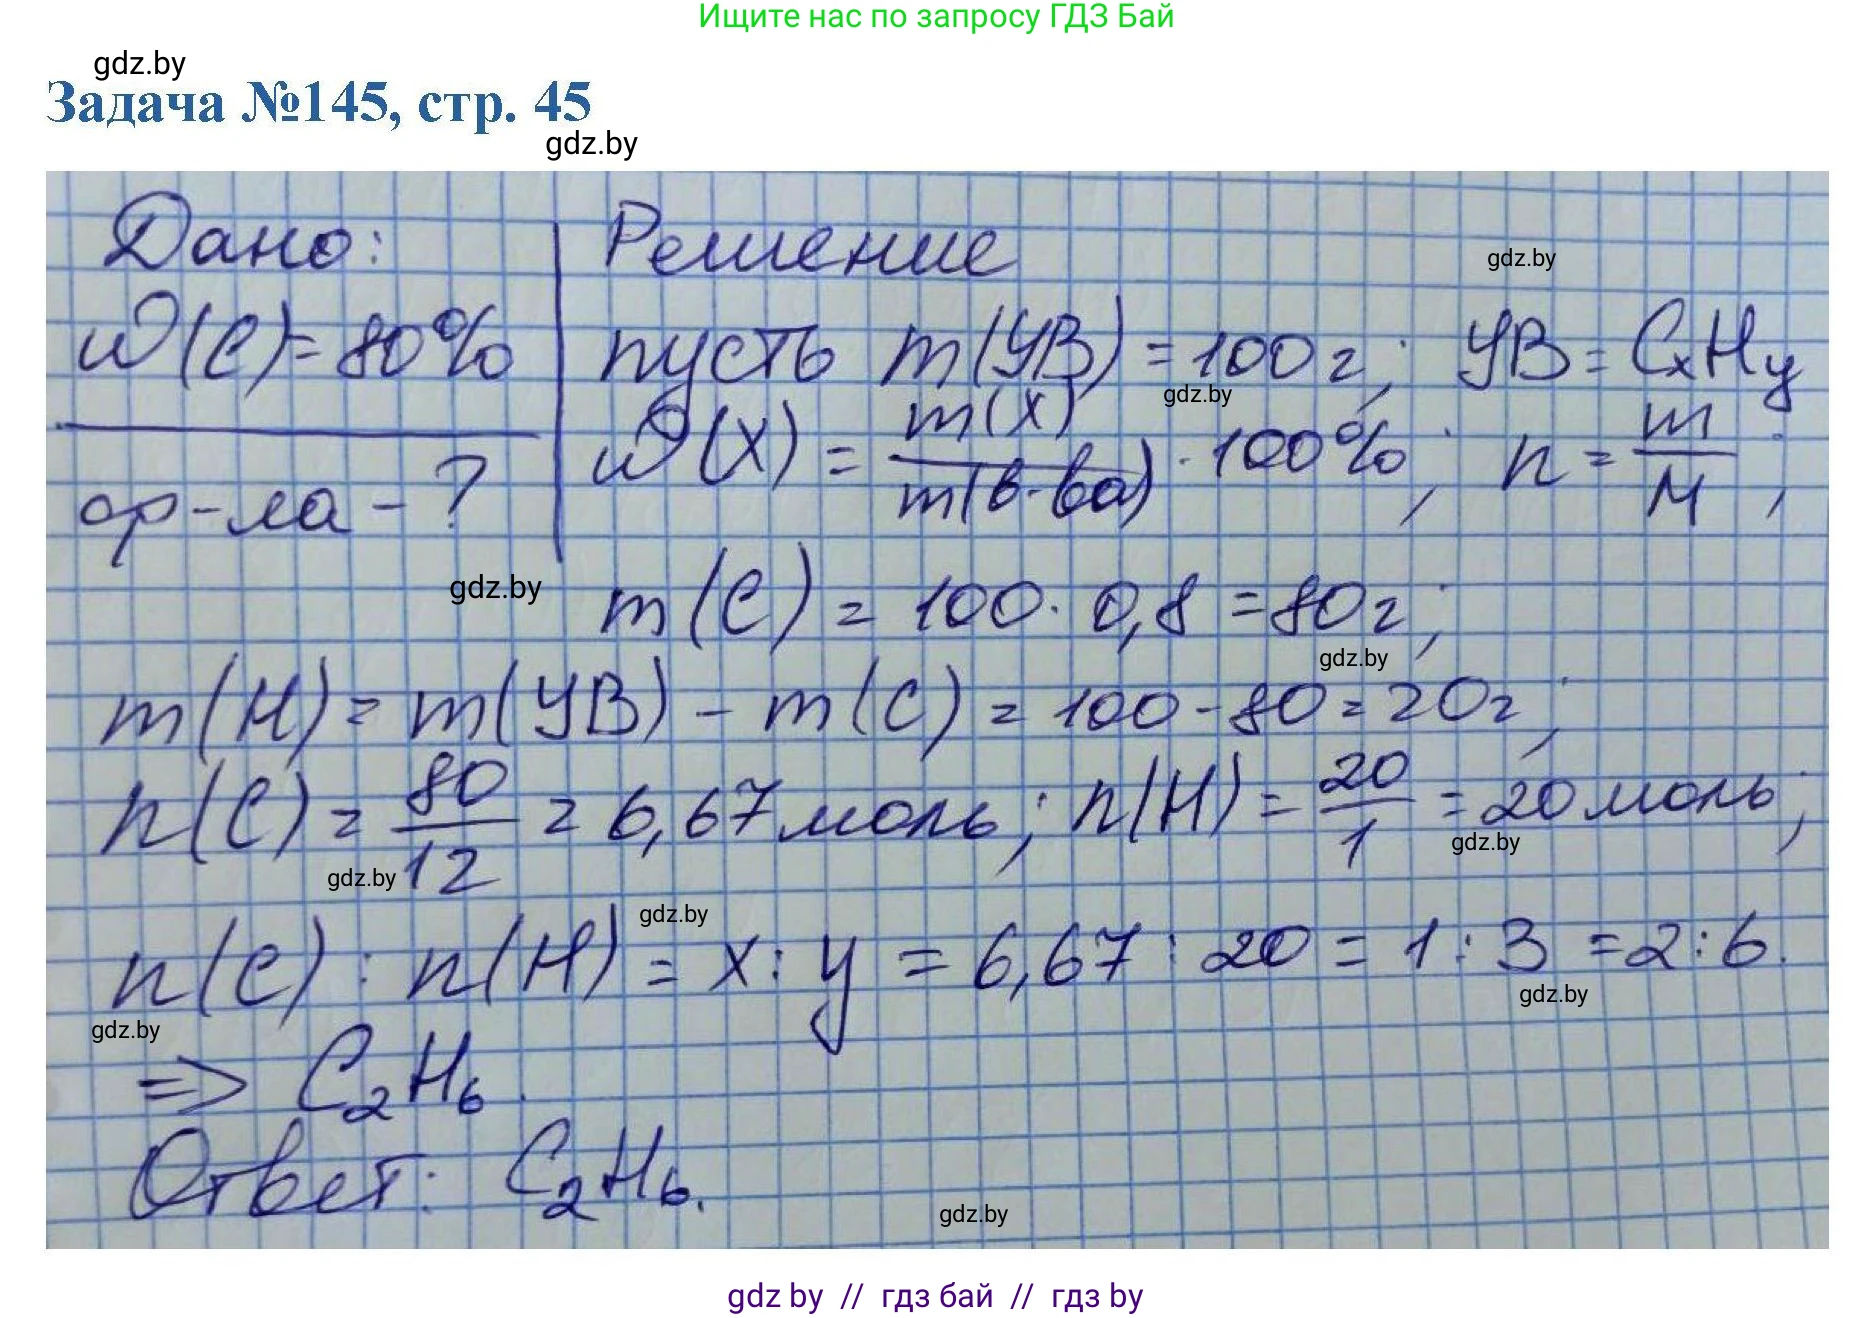 Ищите нас по запросу ГДЗ Бай
gdz.by
Задача №145, стр. 45
gdz.by
Дано: Решение
gdz.by
w(C)=80% пусть m(УВ)=100г; УВ=CxHy
gdz.by
w(X) = m(X)/m(в-ва) · 100%; n = m/M;
ф-ла - ?
gdz.by
m(C) = 100 · 0,8 = 80г;
gdz.by
m(H) = m(УВ) - m(C) = 100 - 80 = 20г;
n(C) = 80/12 = 6,67 моль; n(H) = 20/1 = 20 моль;
gdz.by
gdz.by
gdz.by
n(C) : n(H) = x : y = 6,67 : 20 = 1 : 3 = 2 : 6.
gdz.by
gdz.by
=> C₂H₆.
Ответ: C₂H₆.
gdz.by
gdz by // гдз бай // гдз by